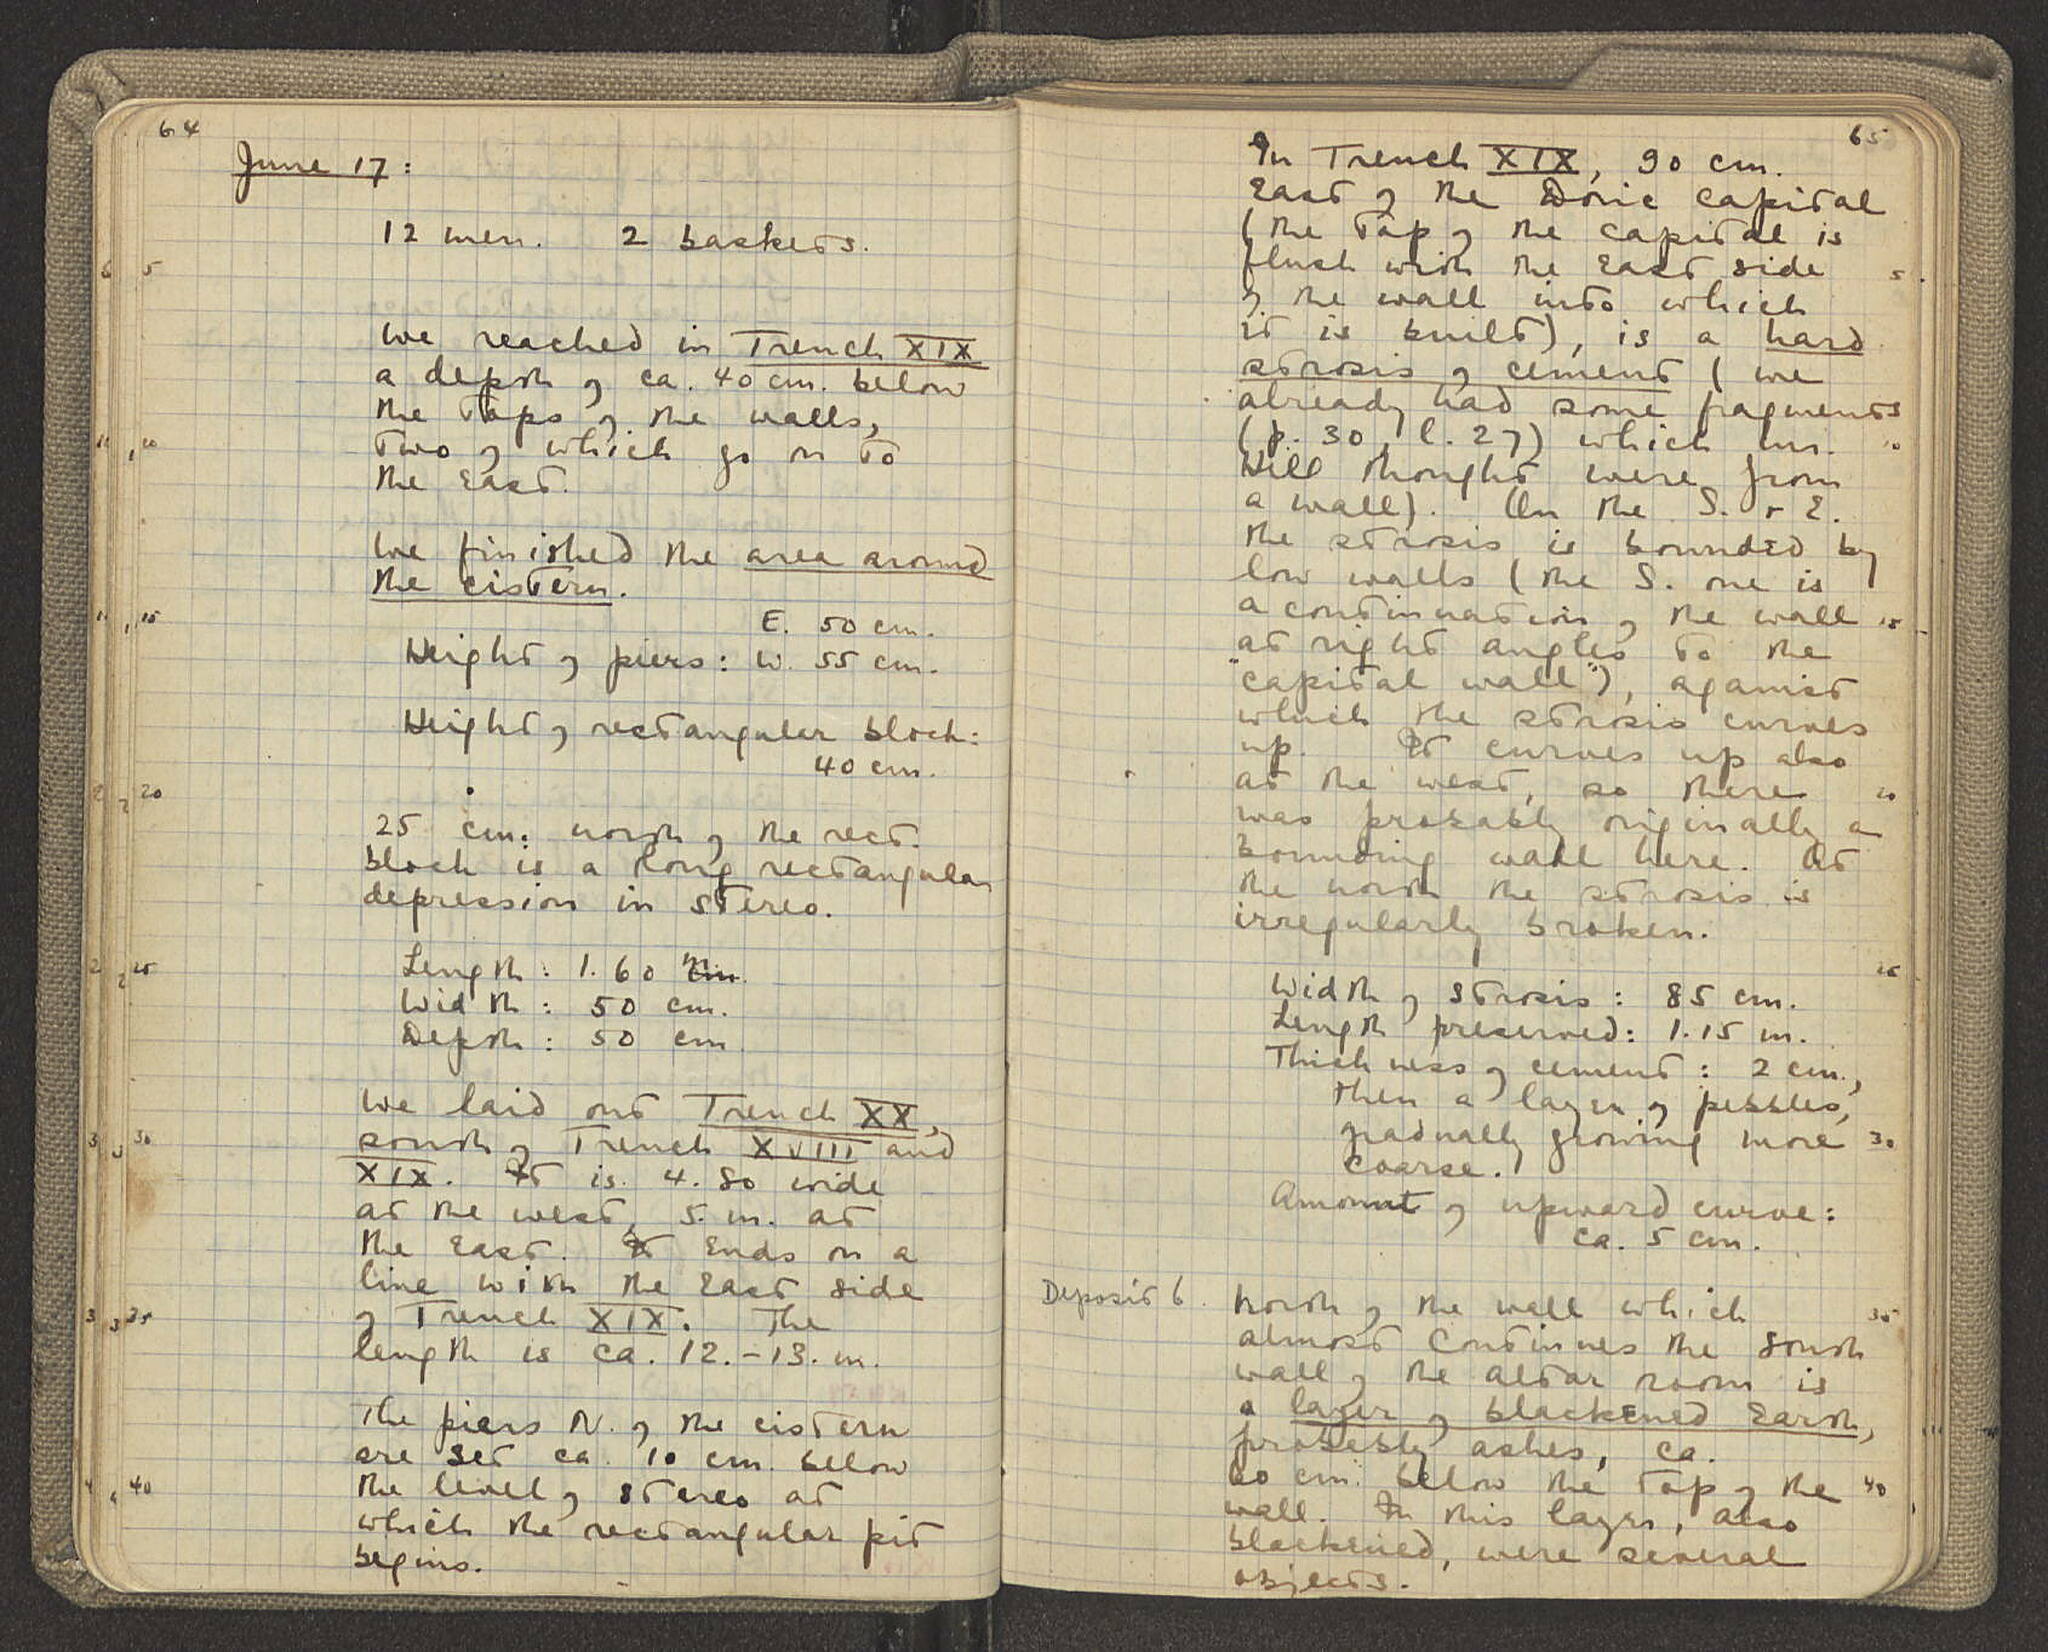 64
June 17:
12 men. 2 baskets.
5
We reached in Trench XIX
a depth of ca. 40 cm. below
the tops of the walls,
two of which go on to
10
the East.
We finished the area around
the cistern.
15
E. 50 cm.
Height of piers: W. 55 cm.
Height of rectangular block:
40 cm.
20
25 cm. north of the rect.
block is a long rectangular
depression in stereo.
Length: 1.60 m.
25
Width: 50 cm.
Depth: 50 cm
We laid out Trench XX,
30
south of Trench XVIII and
XIX. It is 4.80 wide
at the west, 5. m. at
the East. It Ends on a
line with the East side
35
of Trench XIX. The
length is ca. 12.-13. m.
The piers N. of the cistern
are set ca. 10 cm. below
40
the level of stereo at
which the rectangular pit
begins.
65
In Trench XIX, 90 cm.
East of the Doric capital
(the top of the capital is
flush with the East side 5
of the wall into which
it is built), is a hard
strosis of cement (we
already had some fragments
(p. 30, l. 27) which Mr. 10
Hill thought were from
a wall). On the S. + E.
the strosis is bounded by
low walls (the S. one is
a continuation of the wall 15
at right angles to the
"capital wall"), against
which the strosis curves
up. It curves up also
at the west, so there 20
was probably originally a
bounding wall here. At
the north the strosis is
irregularly broken.
25
Width of strosis: 85 cm.
Length preserved: 1.15 m.
Thickness of cement: 2 cm.,
then a layer of pebbles,
gradually growing more 30
coarse.
Amount of upward curve:
ca. 5 cm.
Deposit 6. North of the wall which 35
almost continues the south
wall of the altar room is
a layer of blackened Earth,
probably ashes, ca.
60 cm. below the top of the 40
wall. In this layer, also
blackened, were several
objects.